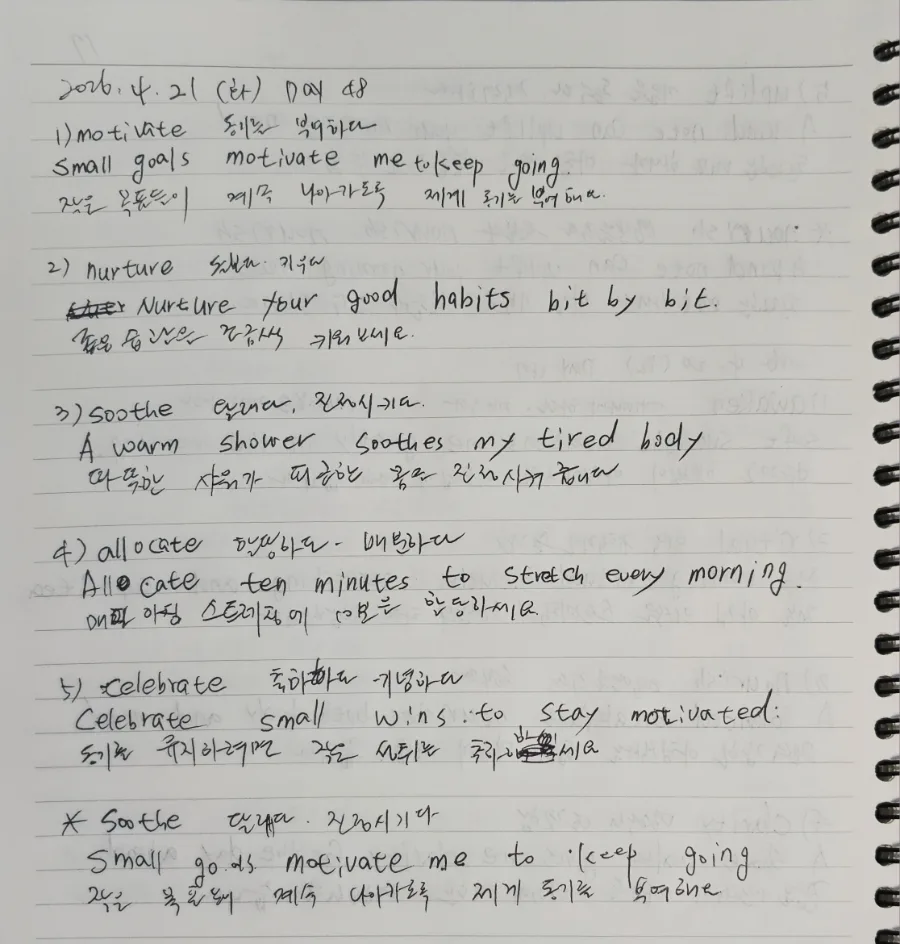 2026. 4. 21 (화) Day 48
1) motivate 동기를 부여하다
Small goals motivate me to keep going.
작은 목표들이 계속 나아가도록 제게 동기를 부여해요.
2) nurture 돌보다. 키우다
Nurture your good habits bit by bit.
좋은 습관을 조금씩 키워보세요.
3) soothe 달래다. 진정시키다.
A warm shower soothes my tired body
따뜻한 샤워가 피곤한 몸을 진정시켜 줍니다
4) allocate 할당하다. 배분하다
Allocate ten minutes to stretch every morning.
매일 아침 스트레칭에 10분을 할당하세요
5) celebrate 축하하다 기념하다
Celebrate small wins to stay motivated.
동기를 유지하려면 작은 성취를 축하하세요
* Soothe 달래다. 진정시키다
Small goals motivate me to keep going
작은 목표들이 계속 나아가도록 제게 동기를 부여해요